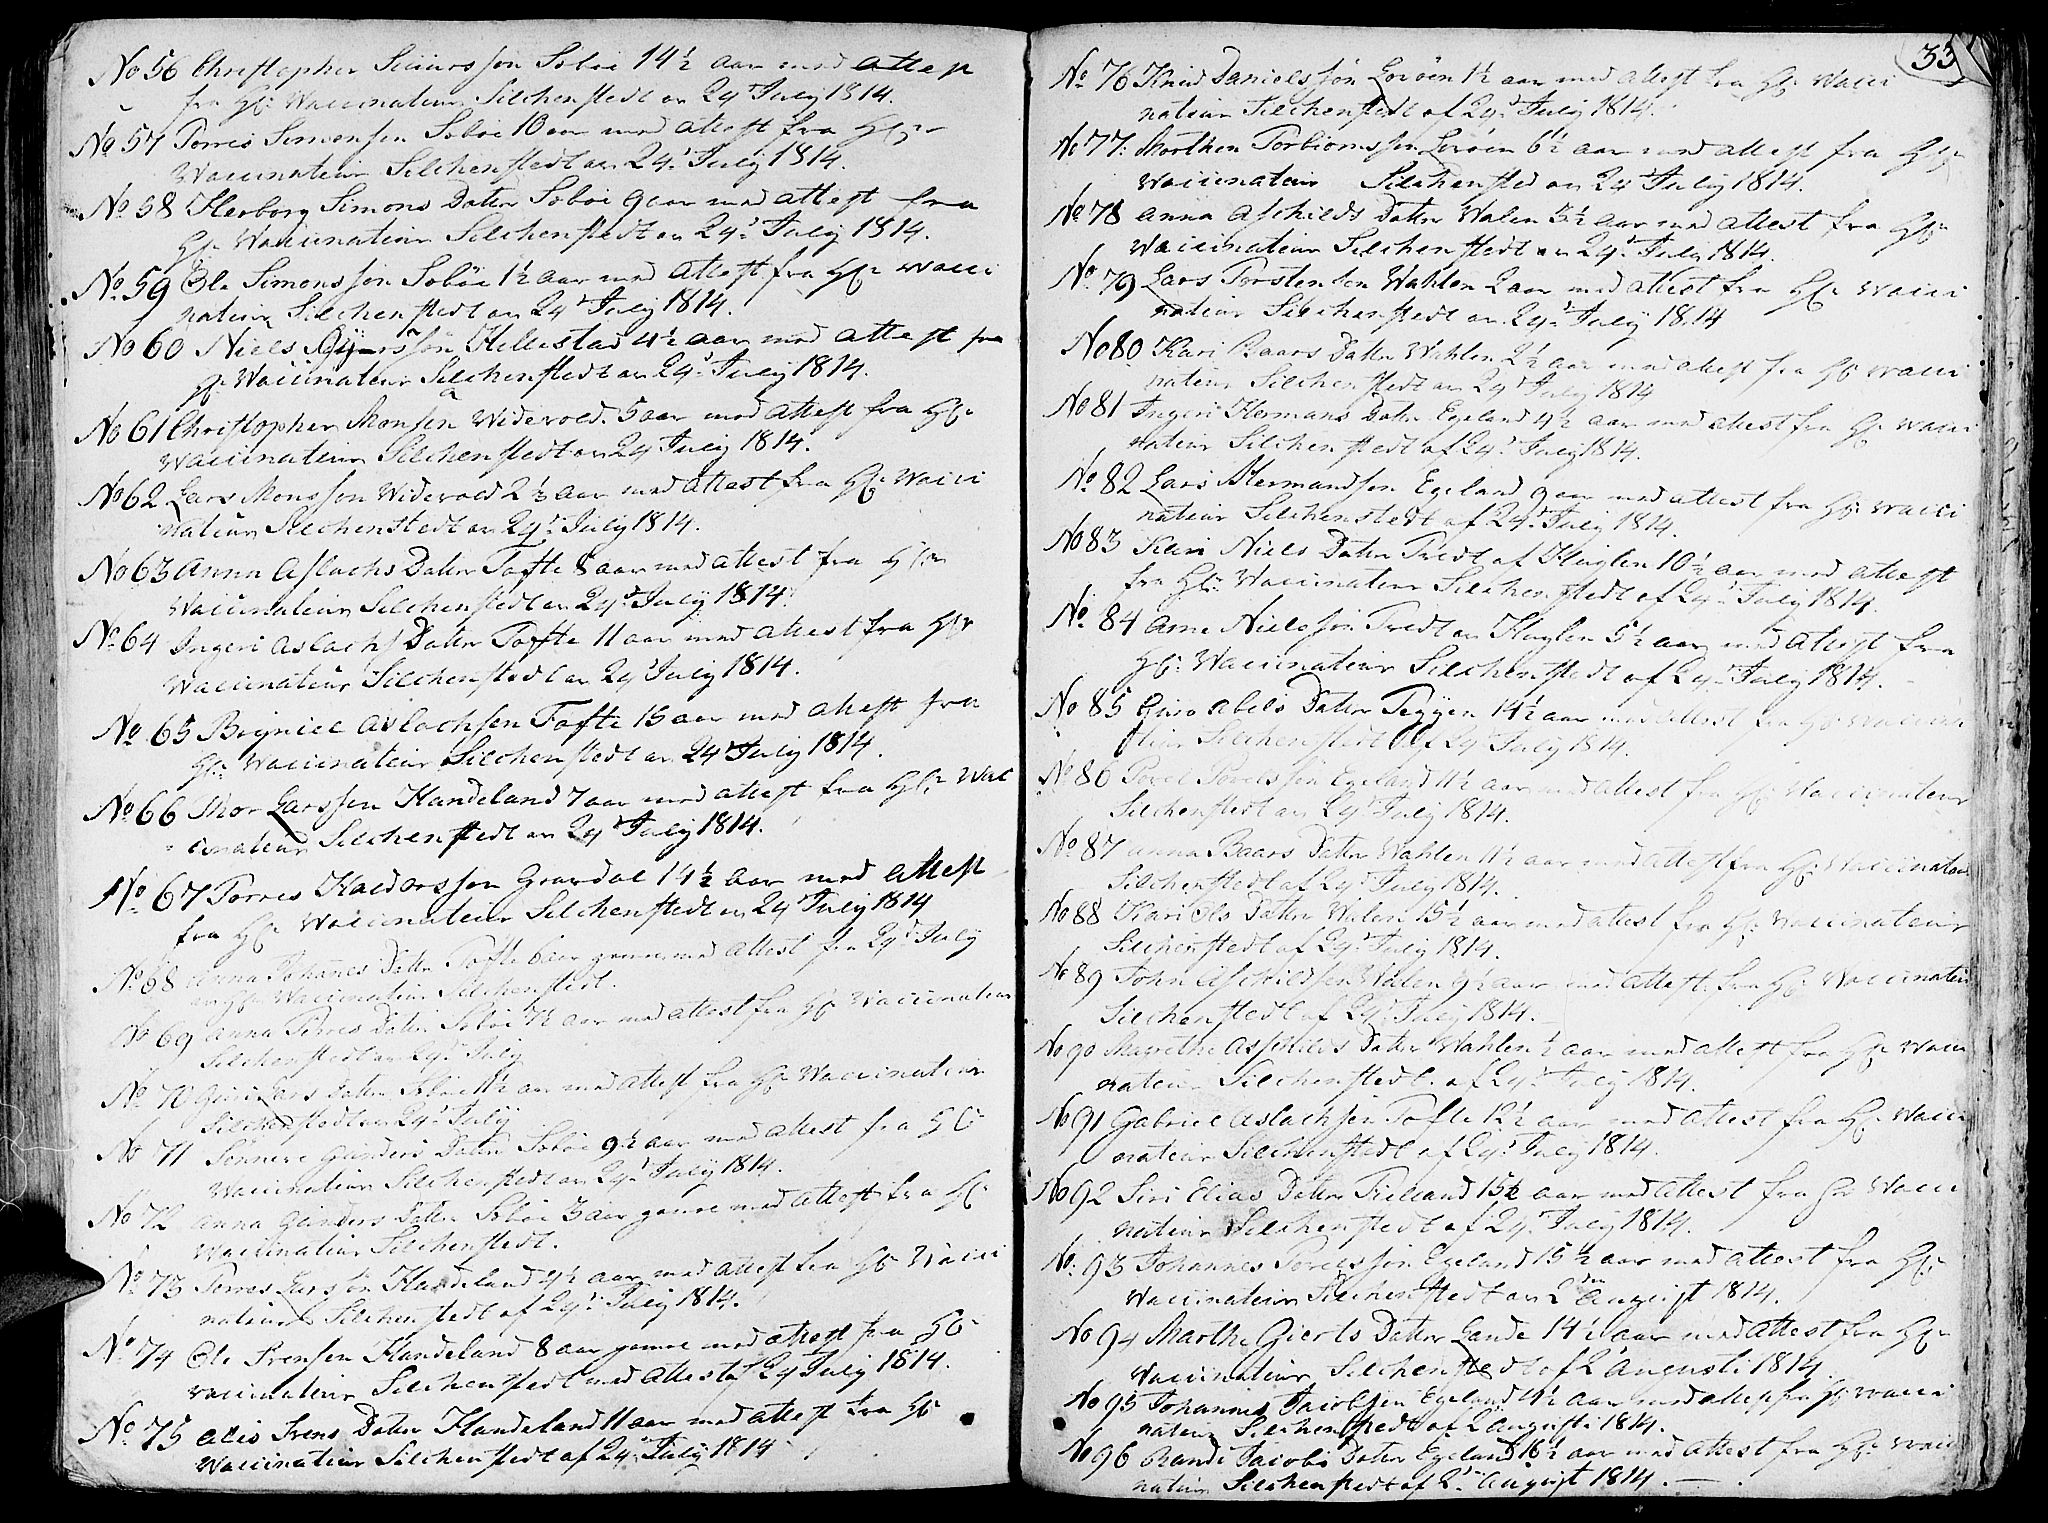 No 56 Christopher Siursson Soböe 14½ aar med attest
fra Hr: Vaccinateur Silchenstedt av 24d July 1814.
No 57 Torres Simonsen Soböe 10 aar med attest fra Hr:
Vaccinateur Silchenstedt av 24d July 1814.
No 58 Herborg Simons Datter Soböe 9 aar med attest fra
Hr: Vaccinateur Silchenstedt av 24d July 1814.
No 59 Ole Simonsson Soböe 1½ aar med attest fra Hr: Vacci
nateur Silchenstedt av 24d July 1814.
No 60 Niels Hellestad 4½ aar med attest fra
Hr: Vaccinateur Silchenstedt av 24d July 1814.
No 61 Christopher Monsen Widevold 5 aar med attest fra Hr:
Vaccinateur Silchenstedt av 24d July 1814.
No 62 Lars Monsson Widevold 2⅓ aar med attest fra Hr: Vacci
nateur Silchenstedt av 24d July 1814.
No 63 Anna Aslachs Datter Tofte 8 aar med attest fra Hr:
Vaccinateur Silchenstedt av 24d July 1814.
No 64 Ingeri Aslachs Datter Tofte 11 aar med attest fra Hr
Vaccinateur Silchenstedt av 24d July 1814.
No 65 Brÿniel Aslachsen Tofte 15 aar med attest fra
Hr: Vaccinateur Silchenstedt av 24d July 1814.
No 66 Thor Larssen Handeland 7 aar med attest fra Hr: Vac
cinateur Silchenstedt av 24d July 1814.
No 67 Torres Haldorsson Grovdal 14½ aar med attest
fra Hr: Vaccinateur Silchenstedt av 24d July 1814
No 68 Anna Johannes Datter Tofte 6 aar med attest fra 24d July
Vaccinateur Silchenstedt.
No 69 Anna Torres Datter Soböe 7½ aar med attest fra Hr Vaccinateur
Silchenstedt av 24d July
No 70 Guri Lars Datter Soböe 11½ aar med attest fra Hr Vaccinateur
Silchenstedt av 24d July
No 71 Gunders Datter Soböe 9½ aar med attest fra Hr
Vaccinateur Silchenstedt av 24d July 1814.
No 72 Anna Gunders Datter Soböe 3 aar gamel med attest fra Hr:
Vaccinateur Silchenstedt.
No 73 Torres Larsön Handeland 4½ aar med attest fra Hr Vacci
nateur Silchenstedt af 24d July 1814.
No 74 Ole Svensen Handeland 8 aar gamel med attest fra Hr
vaccinateur Silchenstedt med attest af 24 July 1814.
No 75 Alis Svens Datter Handeland 11 aar med attest fra Hr
Vaccinateur Silchenstedt af 24d July 1814
33
No 76 Knud Danielssön Loröen 1½ aar med attest fra Hr: Vacci
nateur Silchenstedt af 24d July 1814.
No 77: Morthen Torbiornssen Loröen 6½ aar med attest fra Hr:
Vaccinateur Silchensted av 24d July 1814.
No 78 Anna Aschilds Datter Walen 3½ aar med attest fra Hr:
Vaccinateur Silchenstedt av 24d July 1814.
No 79 Lars Torstensen Wahlen 2 aar med attest fra Hr. Vacci
nateur Silchenstedt av 24d July 1814
No 80 Kari Baars Datter Wahlen 2½ aar med attest fra Hr Vacci
nateur Silchenstedt av 24d July 1814
No 81 Ingeri Hermans Datter Egeland 4½ aar med attest fra Hr Vacci
nateur Silchenstedt af 24d July 1814.
No 82 Lars Hermandsen Egeland 9 aar med attest fra Hr: Vacci
nateur Silchenstedt af 24d July 1814.
No 83 Kari Niels Datter Tvedt af Huglen 10½ aar med attest
fra Hr: Vaccinateur Silchenstedt af 24d July 1814.
No 84 Arne Nielssön Tvedt av Huglen 5½ aar med attest fra
Hr: Vaccinateur Silchenstedt af 24d July 1814.
No 85 Guro Abels Datter Teÿgen 14½ aar med attest fra Hr Vaccina
teur Silchenstedt af 24d July 1814.
No 86 Povel Povelssön Egeland 11½ aar med attest fra Hr: Vaccinateur
Silchenstedt av 24d July 1814.
No 87 Anna Baars Datter Wahlen 11½ aar med attest fra Hr: Vaccinateur
Silchenstedt af 24d July 1814.
No 88 Kari Ols Datter Walen 15½ aar med attest fra Hr: Vaccinateur
Silchenstedt af 24d July 1814.
No 89 John Aschildsen Walen 9½ aar med attest fra Hr: Vaccinateur
Silchenstedt af 24d July 1814.
No 90 Marethe Asschilds Datter Wahlen ½ aar med attest fra Hr Vacci
nateur Silchenstedt. af 24d July 1814.
No 91 Gabriel Aslachsen Tofte 12½ aar med attest fra Hr: Vacci
nateur Silchenstedt af 24d July 1814.
No 92 Siri Elias Datter 15½ aar med attest fra Hr Vacci
nateur Silchenstedt af 24d July 1814.
No: 93 Johannes Povelssön Egeland 15½ aar med attest fra Hr:
Vaccinateur Silchenstedt av 2den August 1814.
No 94 Marthe Gierts Datter Lande 14½ aar med attest fra Hr:
Vaccinateur Silchenstedt af 2d Augusti 1814.
No 95 Johannes Jacobsen Egeland 4½ aar med attest fra Hr Vacci
nateur Silchenstedt af 2d Augusti 1814.
No 96 Randi Jacobs Datter Egeland 16½ aar med attest fra Hr: Vacci
nateur Silchenstedt af 2d August 1814.